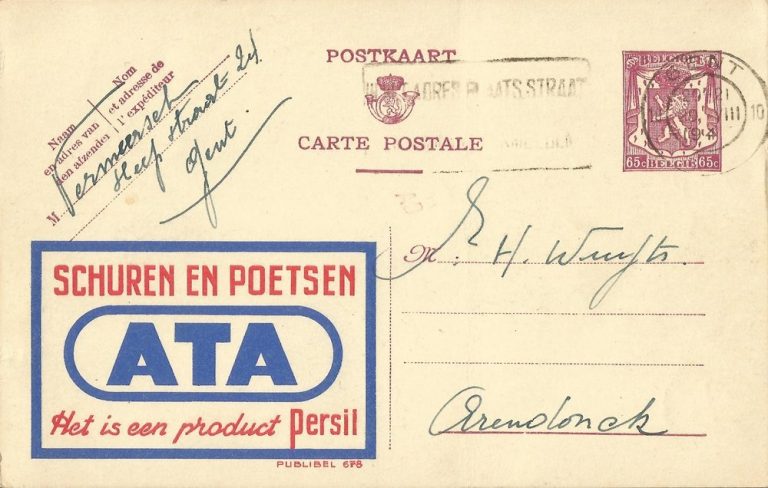 POSTKAART
CARTE POSTALE
Naam
en adres van
den afzender
Nom
et adresse de
l'expéditeur
M Vermeersch
straat 24
Gent.
BELGIQUE
65c 65c
BELGIE
GENT
VIII
10
ADRES PLAATS, STRAAT
SCHUREN EN POETSEN
ATA
Het is een product Persil
PUBLIBEL 678
M. H. Wuyts.
Arendonck